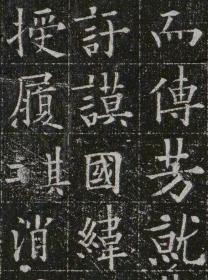 而傳芳就
訏謨國緯
授履消